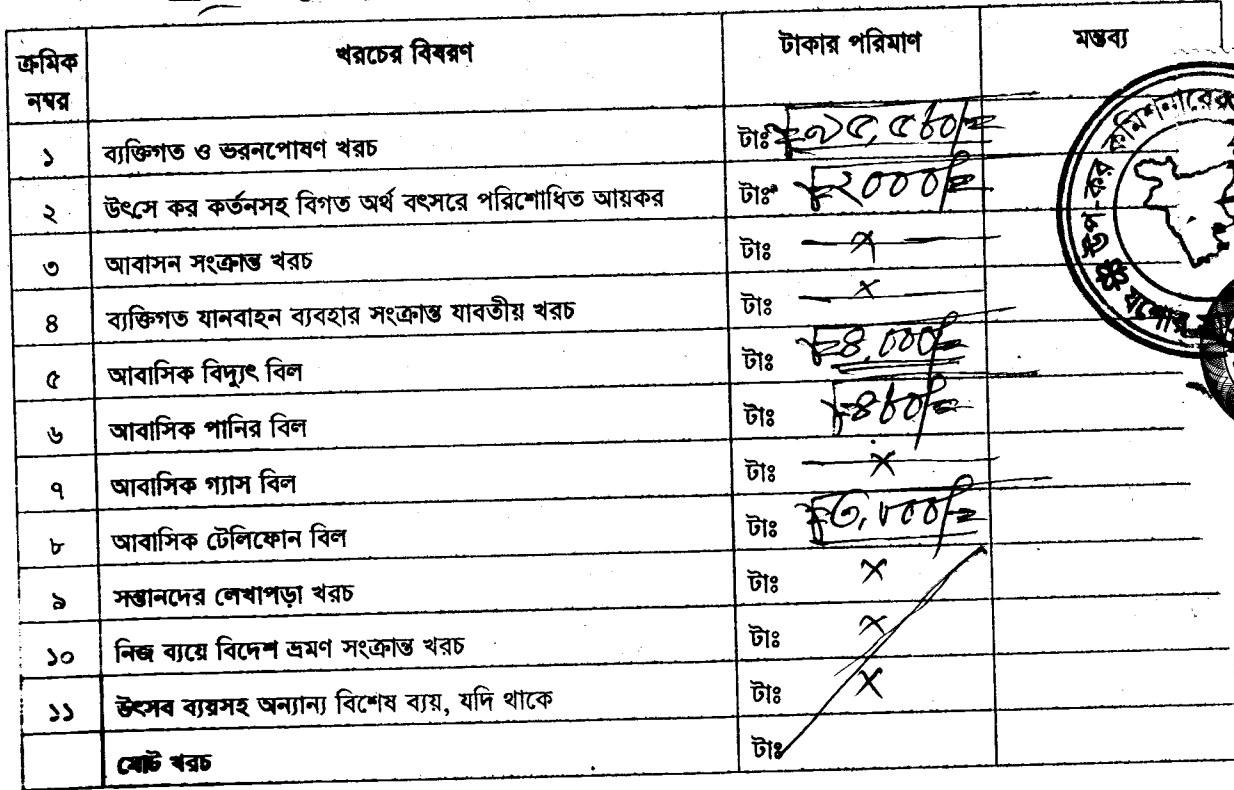 ক্রমিক নম্বর খরচের বিবরণ টাকার পরিমাণ মন্তব্য
১ ব্যক্তিগত ও ভরনপোষণ খরচ টাঃ ৯৫,৫৮০/=
২ উৎসে কর কর্তনসহ বিগত অর্থ বৎসরে পরিশোধিত আয়কর টাঃ ২০০০/=
৩ আবাসন সংক্রান্ত খরচ টাঃ X
৪ ব্যক্তিগত যানবাহন ব্যবহার সংক্রান্ত যাবতীয় খরচ টাঃ X
৫ আবাসিক বিদ্যুৎ বিল টাঃ ৪,০০০/=
৬ আবাসিক পানির বিল টাঃ ৪৮০/=
৭ আবাসিক গ্যাস বিল টাঃ X
৮ আবাসিক টেলিফোন বিল টাঃ
৯ সন্তানদের লেখাপড়া খরচ টাঃ X
১০ নিজ ব্যয়ে বিদেশ ভ্রমণ সংক্রান্ত খরচ টাঃ X
১১ উৎসব ব্যয়সহ অন্যান্য বিশেষ ব্যয়, যদি থাকে টাঃ X
মোট খরচ টাঃ
উপ-কর কমিশনারের
যশোর